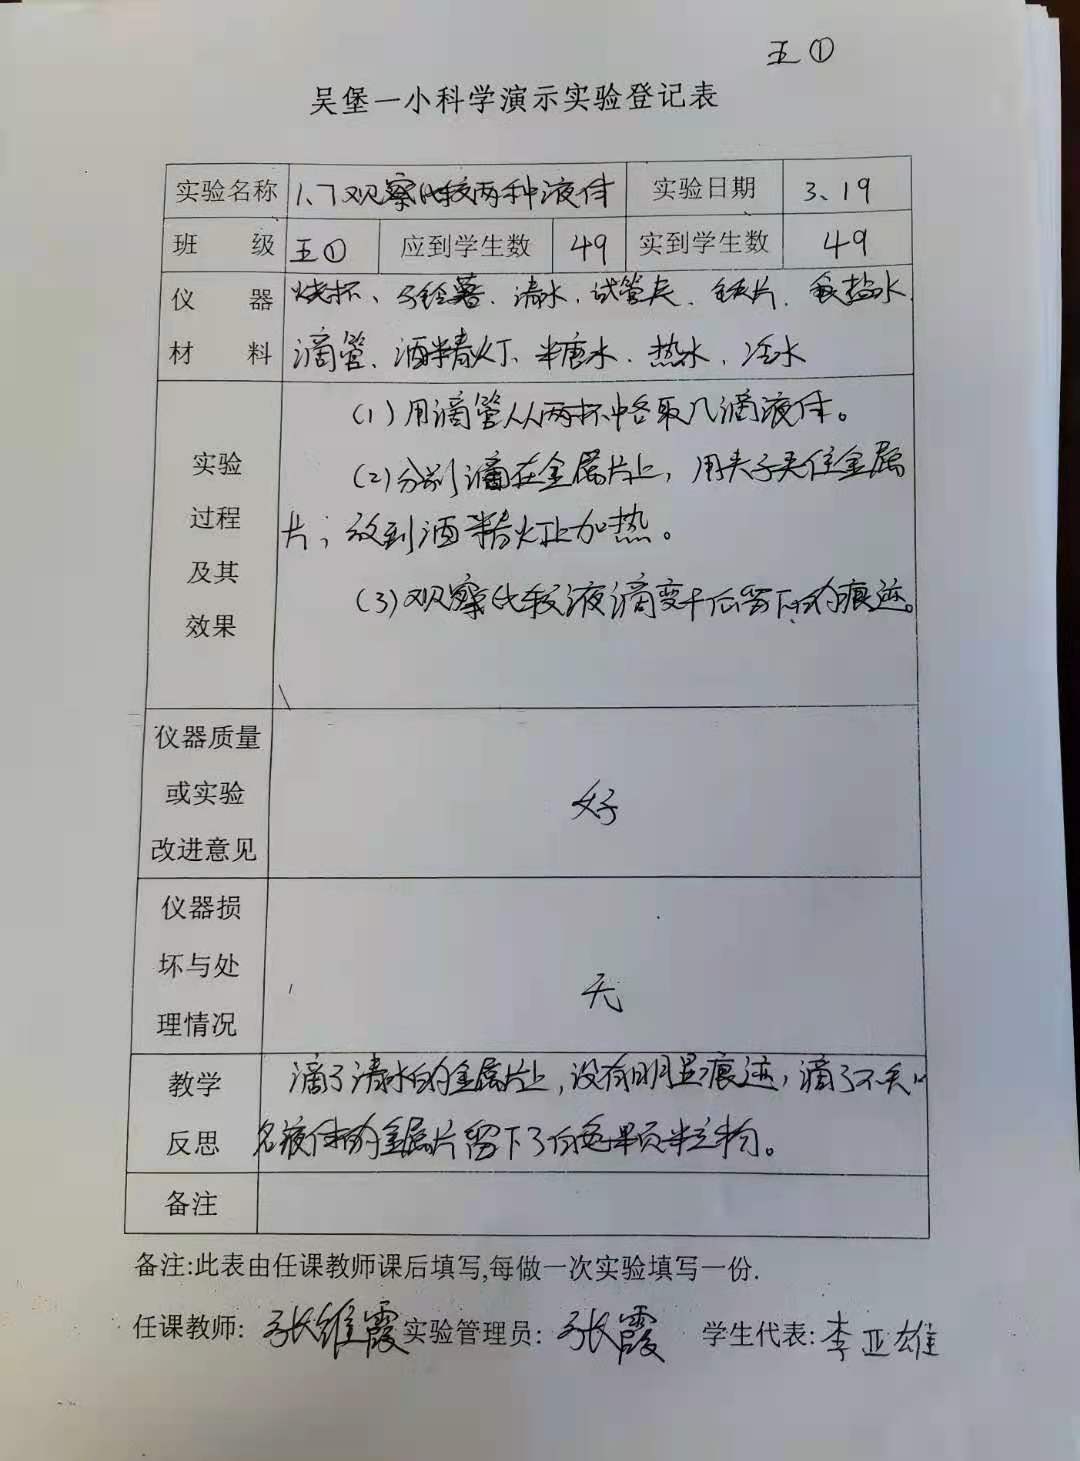 五①
吴堡一小科学演示实验登记表
实验名称 1、7观察比较两种液体 实验日期 3、19
班 级 五① 应到学生数 49 实到学生数 49
仪 器 烧杯、马铃薯、清水、试管夹、铁片、食盐水、
材 料 滴管、酒精灯、糖水、热水、冷水
实验
过程
及其
效果
(1)用滴管从两杯中各取几滴液体。
(2)分别滴在金属片上，用夹子夹住金属
片；放到酒精灯上加热。
(3)观察比较液滴变干后留下的痕迹。
仪器质量
或实验
改进意见
好
仪器损
坏与处
理情况
无
教学 滴了清水的金属片上，没有明显痕迹，滴了不知
反思 名液体的金属片留下了白色颗粒物。
备注
备注:此表由任课教师课后填写,每做一次实验填写一份.
任课教师: 张维霞 实验管理员: 张霞 学生代表: 李亚雄